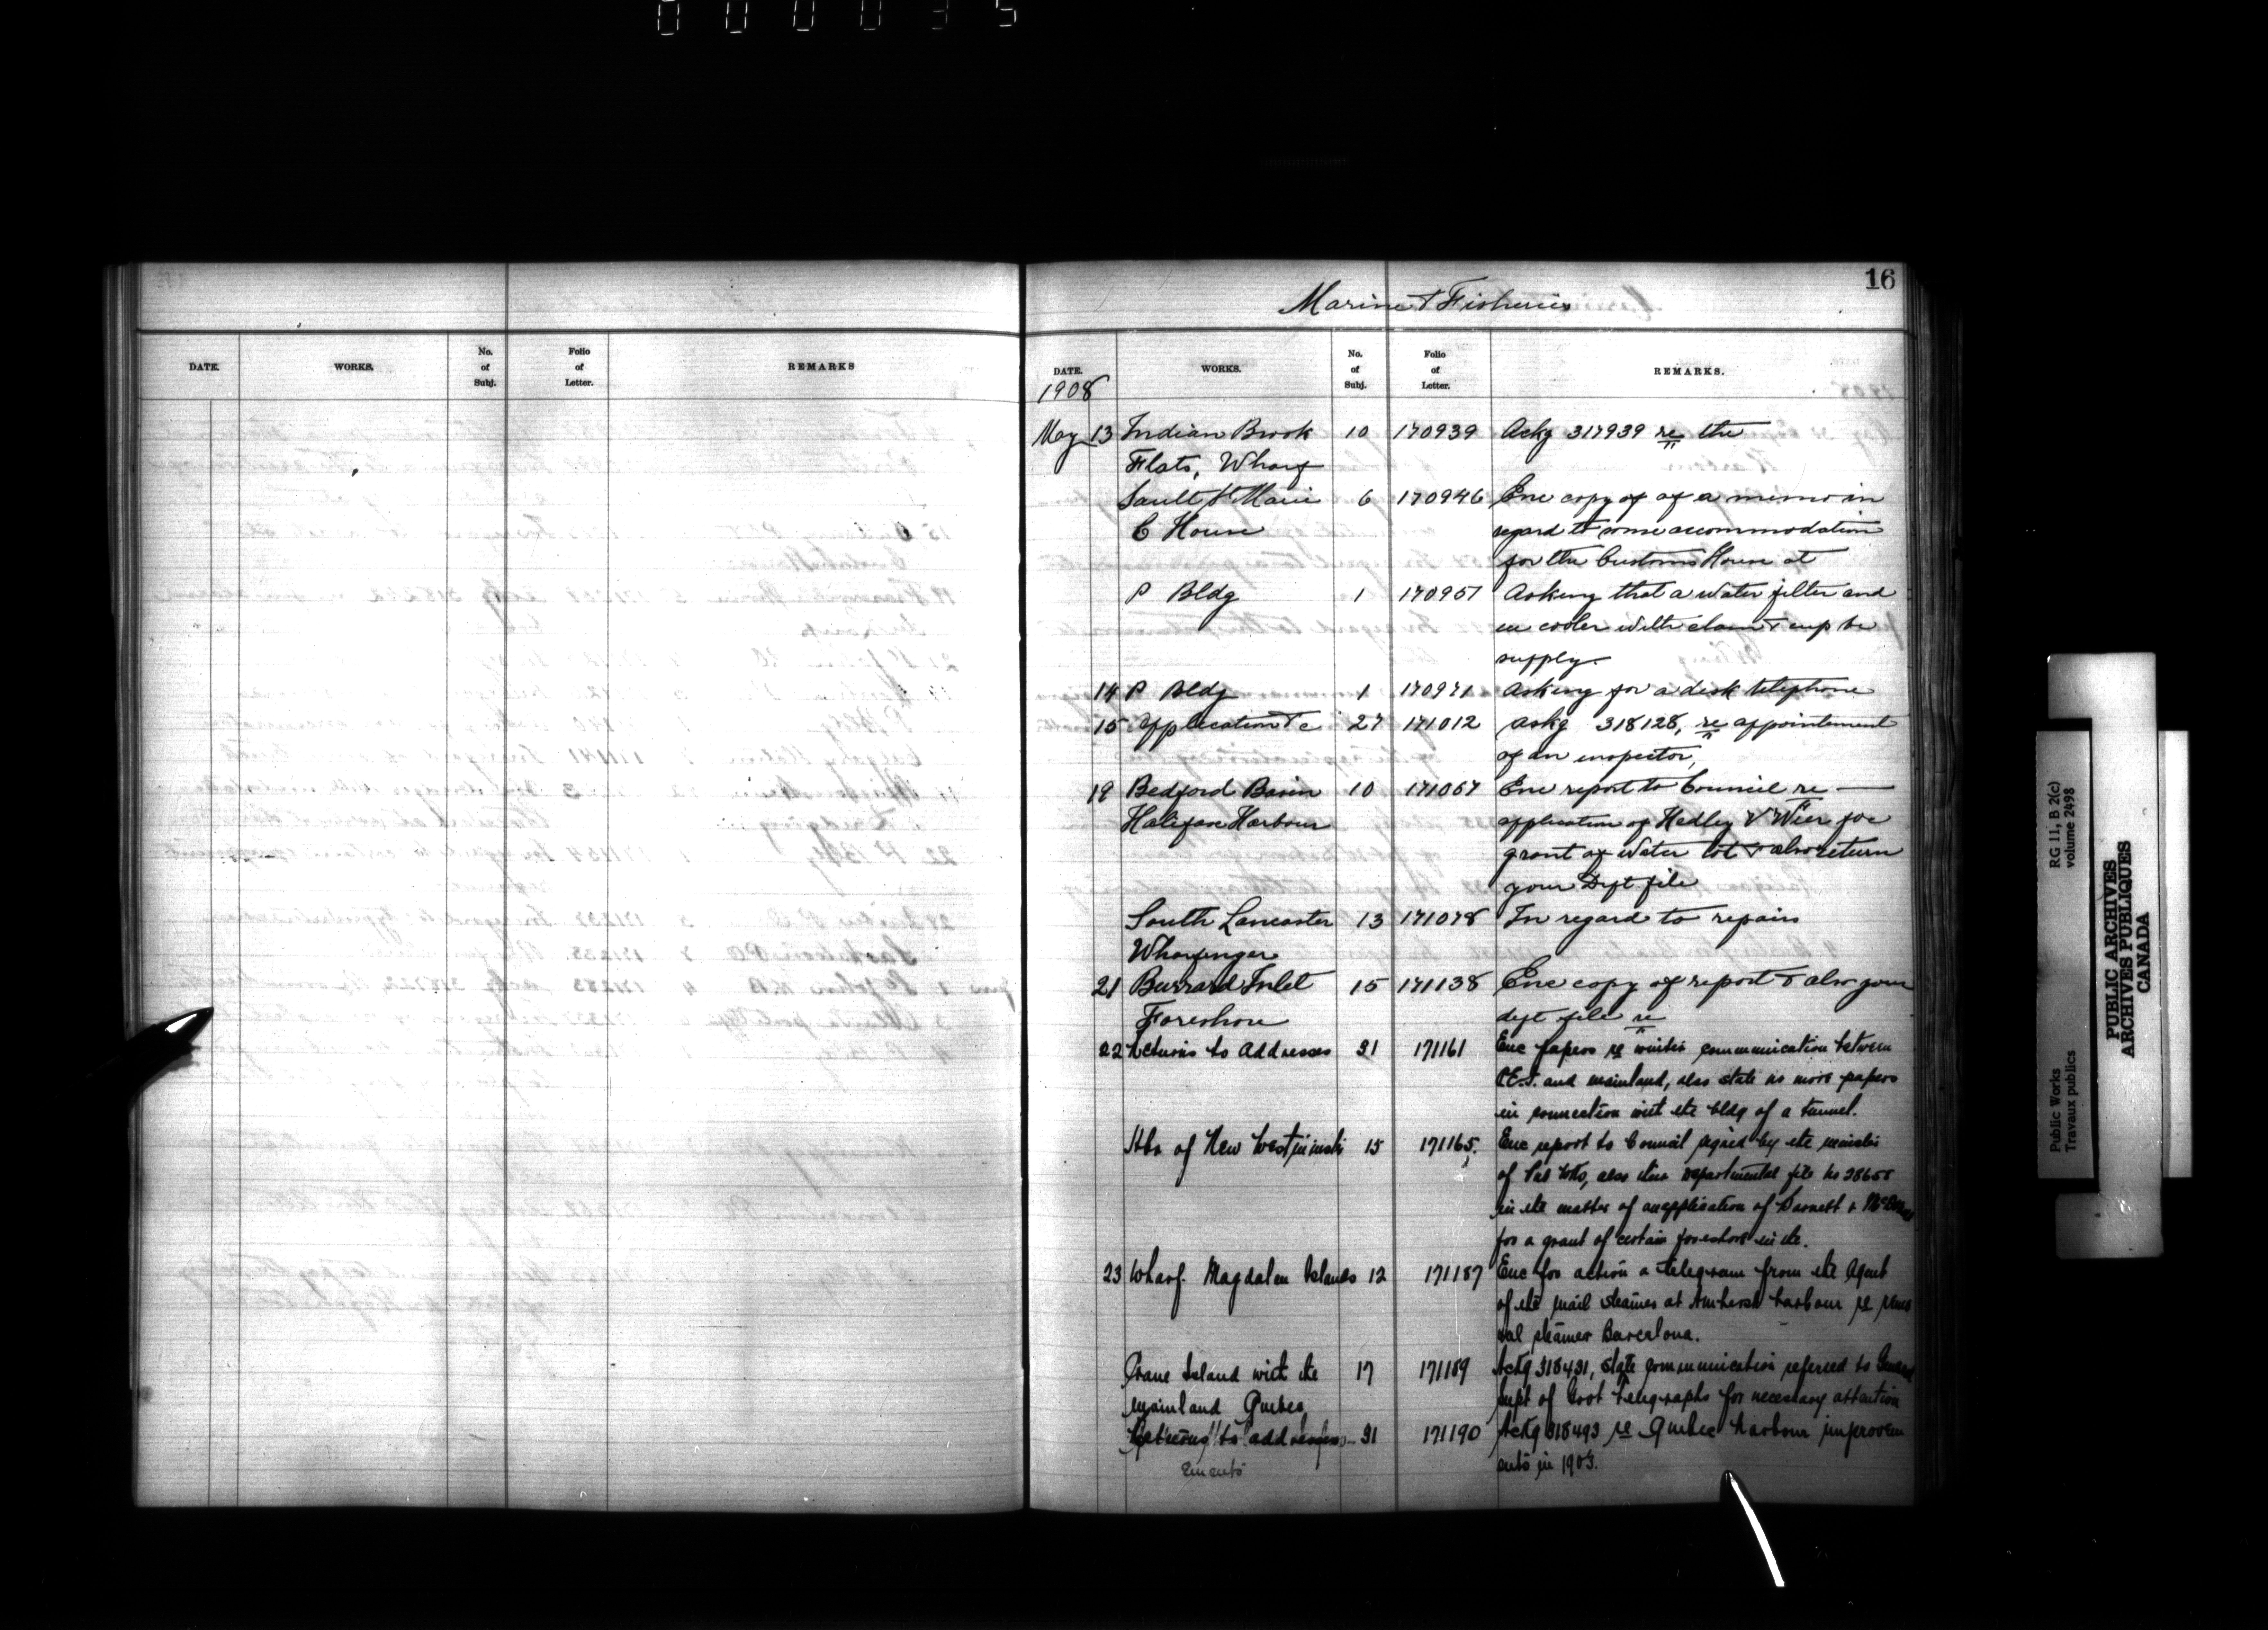 000035
16
Marine & Fisheries
DATE. WORKS. No. of Subj. Folio of Letter. REMARKS
DATE. WORKS. No. of Subj. Folio of Letter. REMARKS.
1908
May 13 Indian Brook 10 170939 Ackg 317939 re the
Flats, Wharf
Sault St Marie 6 170946 Enc copy of of a memo in
C House regard to some accommodation
for the Customs House at
P Bldg 1 170957 Asking that a water filter and
cooler with & cup be
supply.
14 P Bldg 1 170971 Asking for a desk telephone
15 Application &c 27 171012 Ackg 318128, re appointement
of an inspector,
19 Bedford Basin 10 171067 Enc report to Council re —
Halifax Harbour application of Hedley V Wier for
grant of water lot & also return
your Dept file
South Lancaster 13 171078 In regard to repairs
Wharfinger
21 Burrard Inlet 15 171138 Enc copy of report & also your
Foreshore dept file re
22 Returns to Addresses 31 171161 Enc papers re winter communication between
P.E.I. and mainland, also state no more papers
in connection with the bldg of a tunnel.
Hbr of New Westminster 15 171165. Enc report to Council signed by the minister
of Pub Wks, also their departmental file No 28655
in the matter of an application of Barnett &
for a grant of certain foreshore in the.
23 Wharf. Magdalen Islands 12 171187 Enc for action a telegram from the Agent
of the mail steamer at Amherst harbour re
steamer Barcelona.
Crane Island with the 17 171189 Ackg 318431, state communication referred to General
mainland Quebec Supt of Govt telegraphs for necessary attention
Returns to addresses 31 171190 Ackg 318493 re Quebec harbour improvem
ents in 1903.
Ements
Public Works RG 11, B 2(c)
Travaux publics volume 2498
PUBLIC ARCHIVES
ARCHIVES PUBLIQUES
CANADA